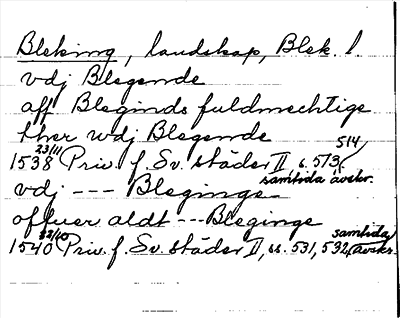 Bleking, landskap, Blek. l.
vdj Blegende
aff Bleginds fuldmechtige
ther wdj Blegende
1538 23/11 Priv. f. Sv. städer II s. 513, 514 samtida avskr.
vdj --- Bleginge
offuer aldt --- Bleginge
1540 22/10 Priv. f. Sv. städer II, ss. 531, 532, samtida avskr.